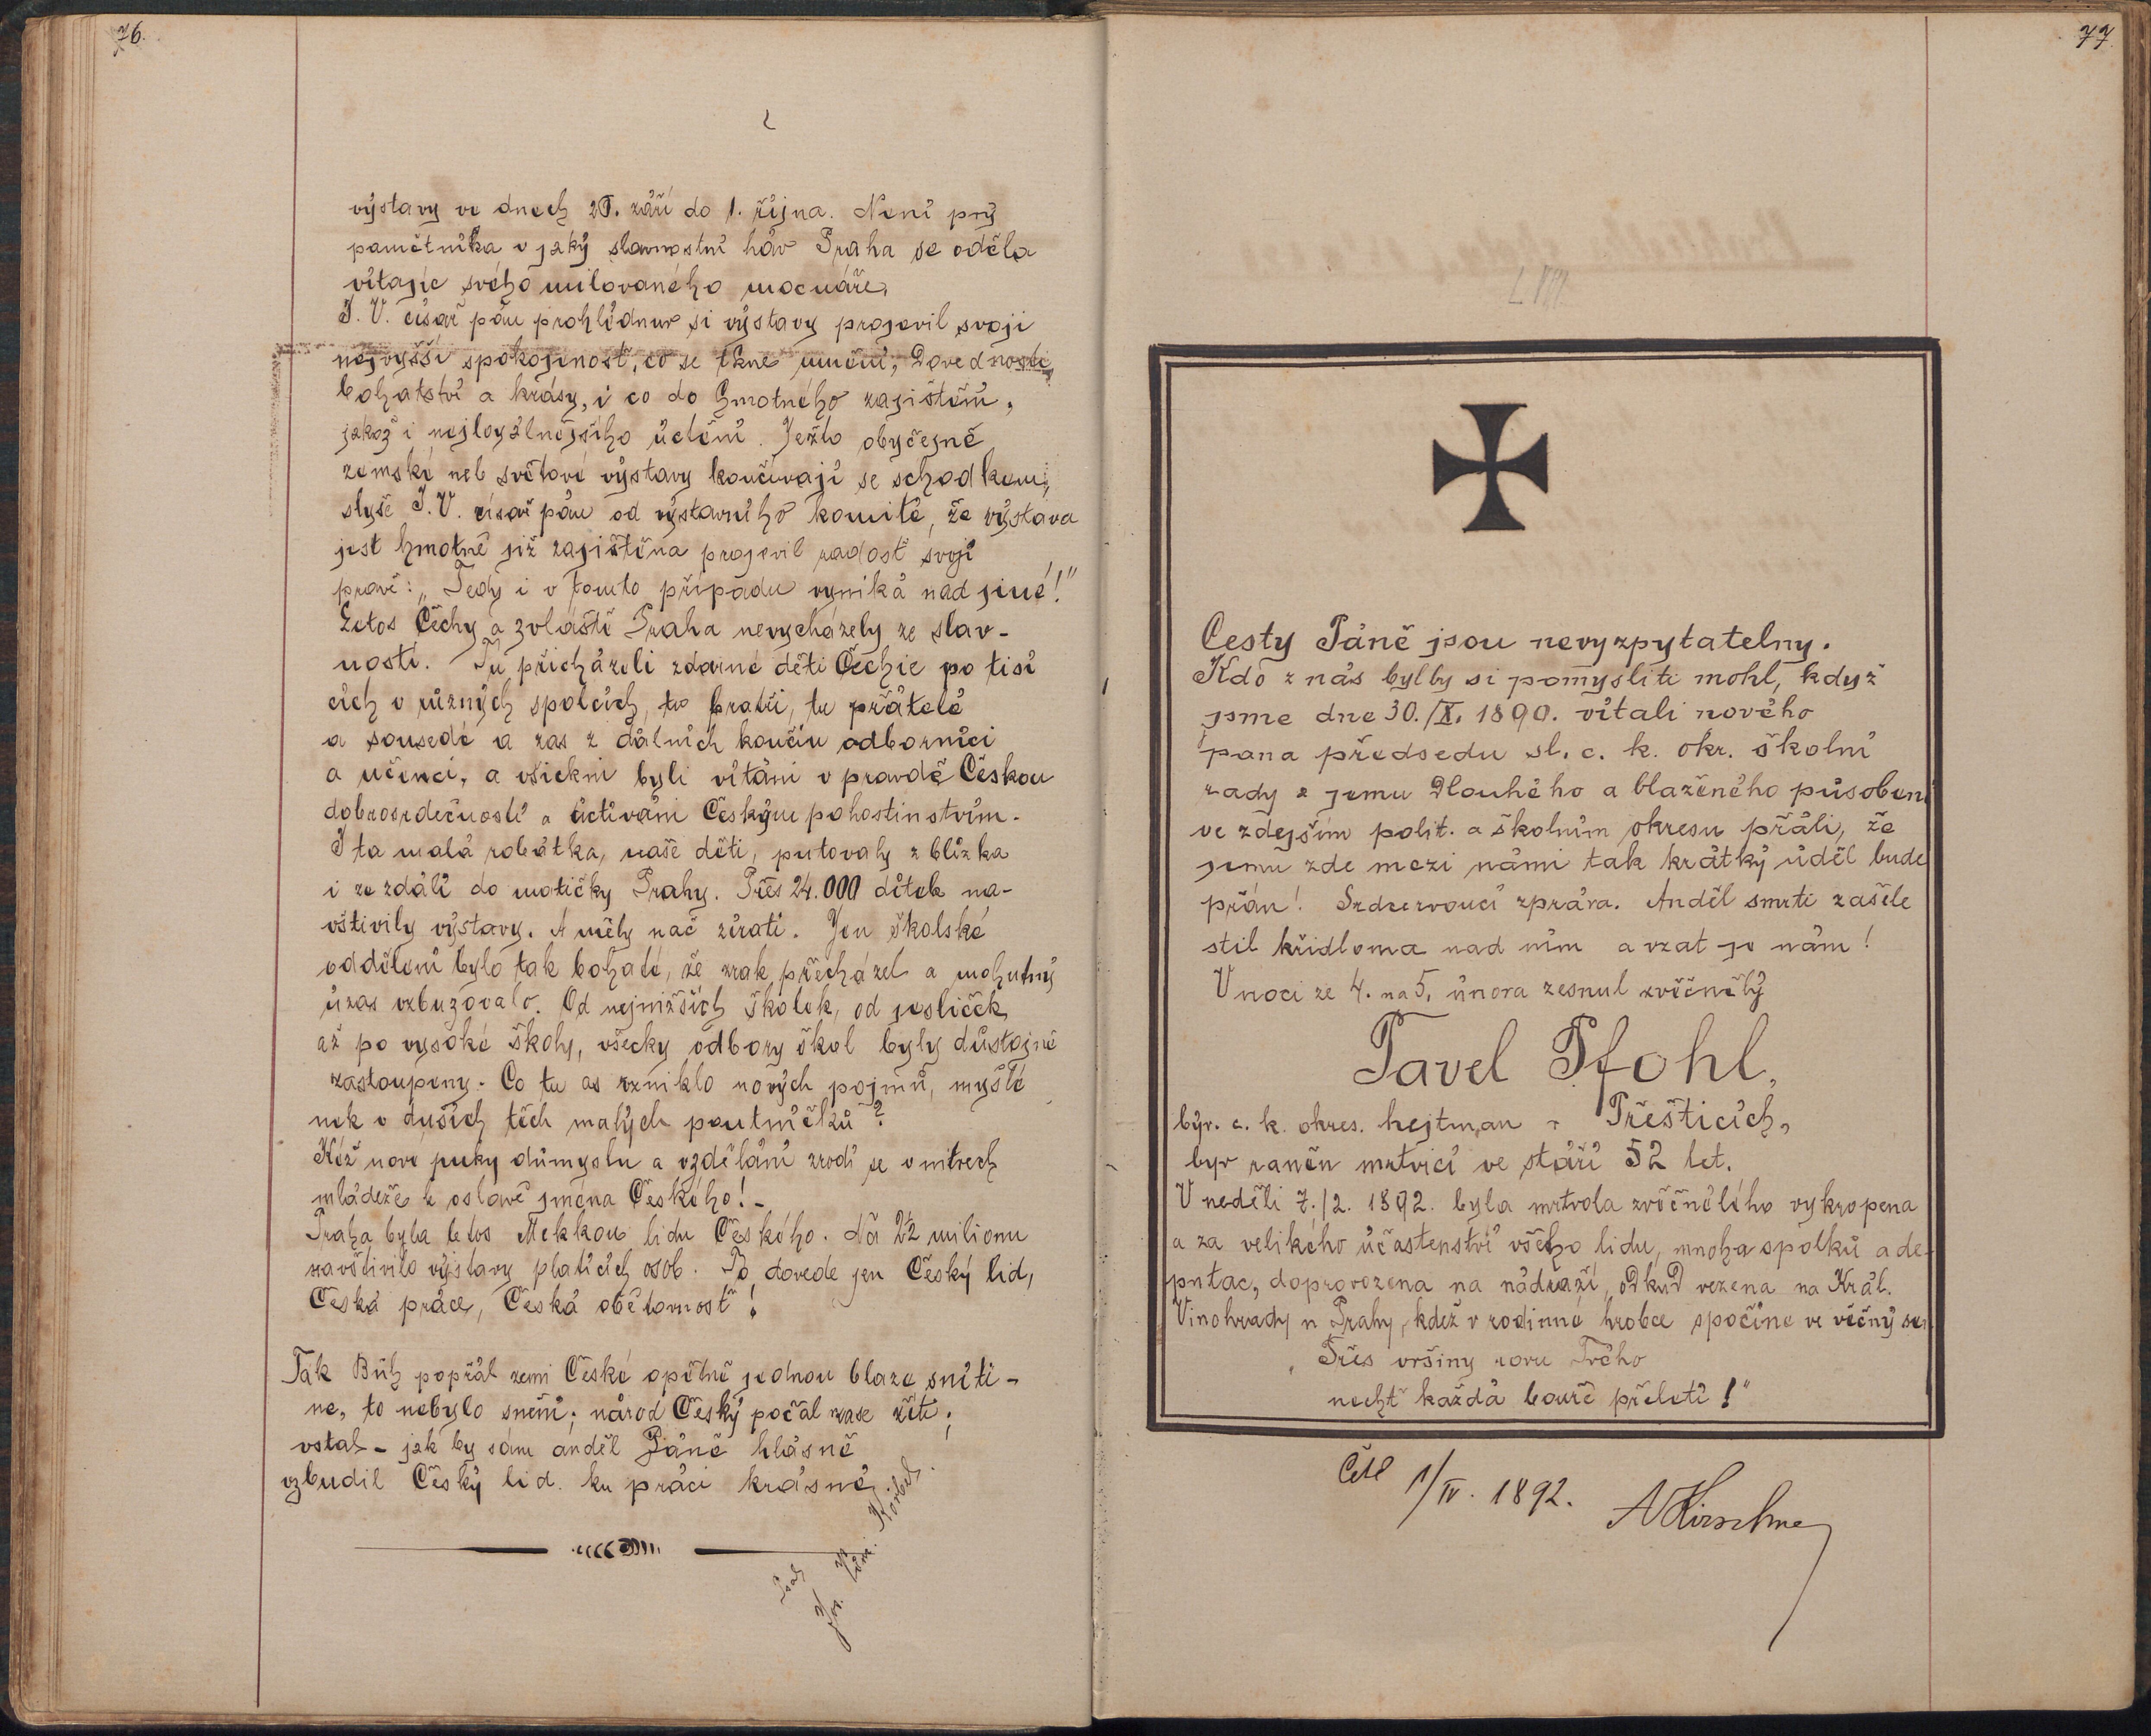 76.
výstavy ve dnech 26. září do 1. října. Není prý
pamětníka v jaký slavnostní háv Praha se oděla
vítajíc svého milovaného mocnáře.
J. V. císař pán prohlédnuv si výstavy projevil svoji
nejvyšší spokojenosť, co se týče umění, dovednosti,
bohatství a krásy, i co do hmotného zajištění,
jakož i nejloyálnějšího účtění. Ježto obyčejně
zemské neb světové výstavy končívají se schodkem,
slyše J. V. císař pán od výstavního komité, že výstava
jest hmotně již zajištěna projevil radosť svoji
pravě: „Tedy i v tomto případu vyniká nad jiné!"
Letos Čechy a zvláště Praha nevycházely ze slav-
ností. Tu přicházeli zdárné děti Čechie po tisí
cích v různých spolcích, tu bratři, tu přátelé
a sousedé a zas z dálních končin odborníci
a učenci, a všickni byli vítáni v pravdě Českou
dobrosrdečností a uctíváni Českým pohostinstvím.
I ta malá robátka, naše děti, putovaly z blízka
i ze zdálí do matičky Prahy. Přes 24.000 dítek na-
vštívily výstavy. A měly nač zírati. Jen školské
oddělení bylo tak bohaté, že zrak přecházel a mohutný
úžas vzbuzovalo. Od nejnižších školek, od jesliček
až po vysoké školy, všecky odbory škol byly důstojně
zastoupeny. Co tu as vzniklo nových pojmů, myšlé
nek v duších těch malých poutníčků?
Kéž nové puky důmyslu a vzdělání zrodí se v nitrech
mládeže k oslavě jména Českého! -
Praha byla letos Mekkou lidu Českého. Na 2½ milionu
navštívilo výstavy platících osob. To dovede jen Český lid,
Česká práce, Česká obětovnosť!
Tak Bůh popřál zemi České opětně jednou blaze sníti -
ne, to nebylo snění; národ Český počal zase žíti;
vstal - jak by sám anděl Páně hlásně
vzbudil Český lid ku práci krásné.
Jos. Korbel.
77
Cesty Páně jsou nevyzpytatelny.
Kdo z nás byl by si pomysliti mohl, když
jsme dne 30./X. 1890. vítali nového
pana předsedu sl. c. k. okr. školní
rady a jemu dlouhého a blaženého působení
ve zdejším polit. a školním okresu přáli, že
jemu zde mezi námi tak krátký úděl bude
přán! Srdcervoucí zpráva. Anděl smrti zašele
stil křidloma nad ním a vzat je nám!
V noci ze 4. na 5. února zesnul zvěčnělý
Pavel Pfohl,
býv. c. k. okres. hejtman v Přešticích,
byv raněn mrtvicí ve stáří 52 let.
V neděli 7./2. 1892. byla mrtvola zvěčnělého vykropena
a za velikého účastenství všeho lidu, mnoha spolků a de-
putac, doprovozena na nádraží, odkud vezena na Král.
Vinohrady u Prahy, kdež v rodinné hrobce spočine ve věčný sen
„Přes vršiny rovu Tvého
nechť každá bouře přeletí!"
Četl 1/IV. 1892. A Kirschner